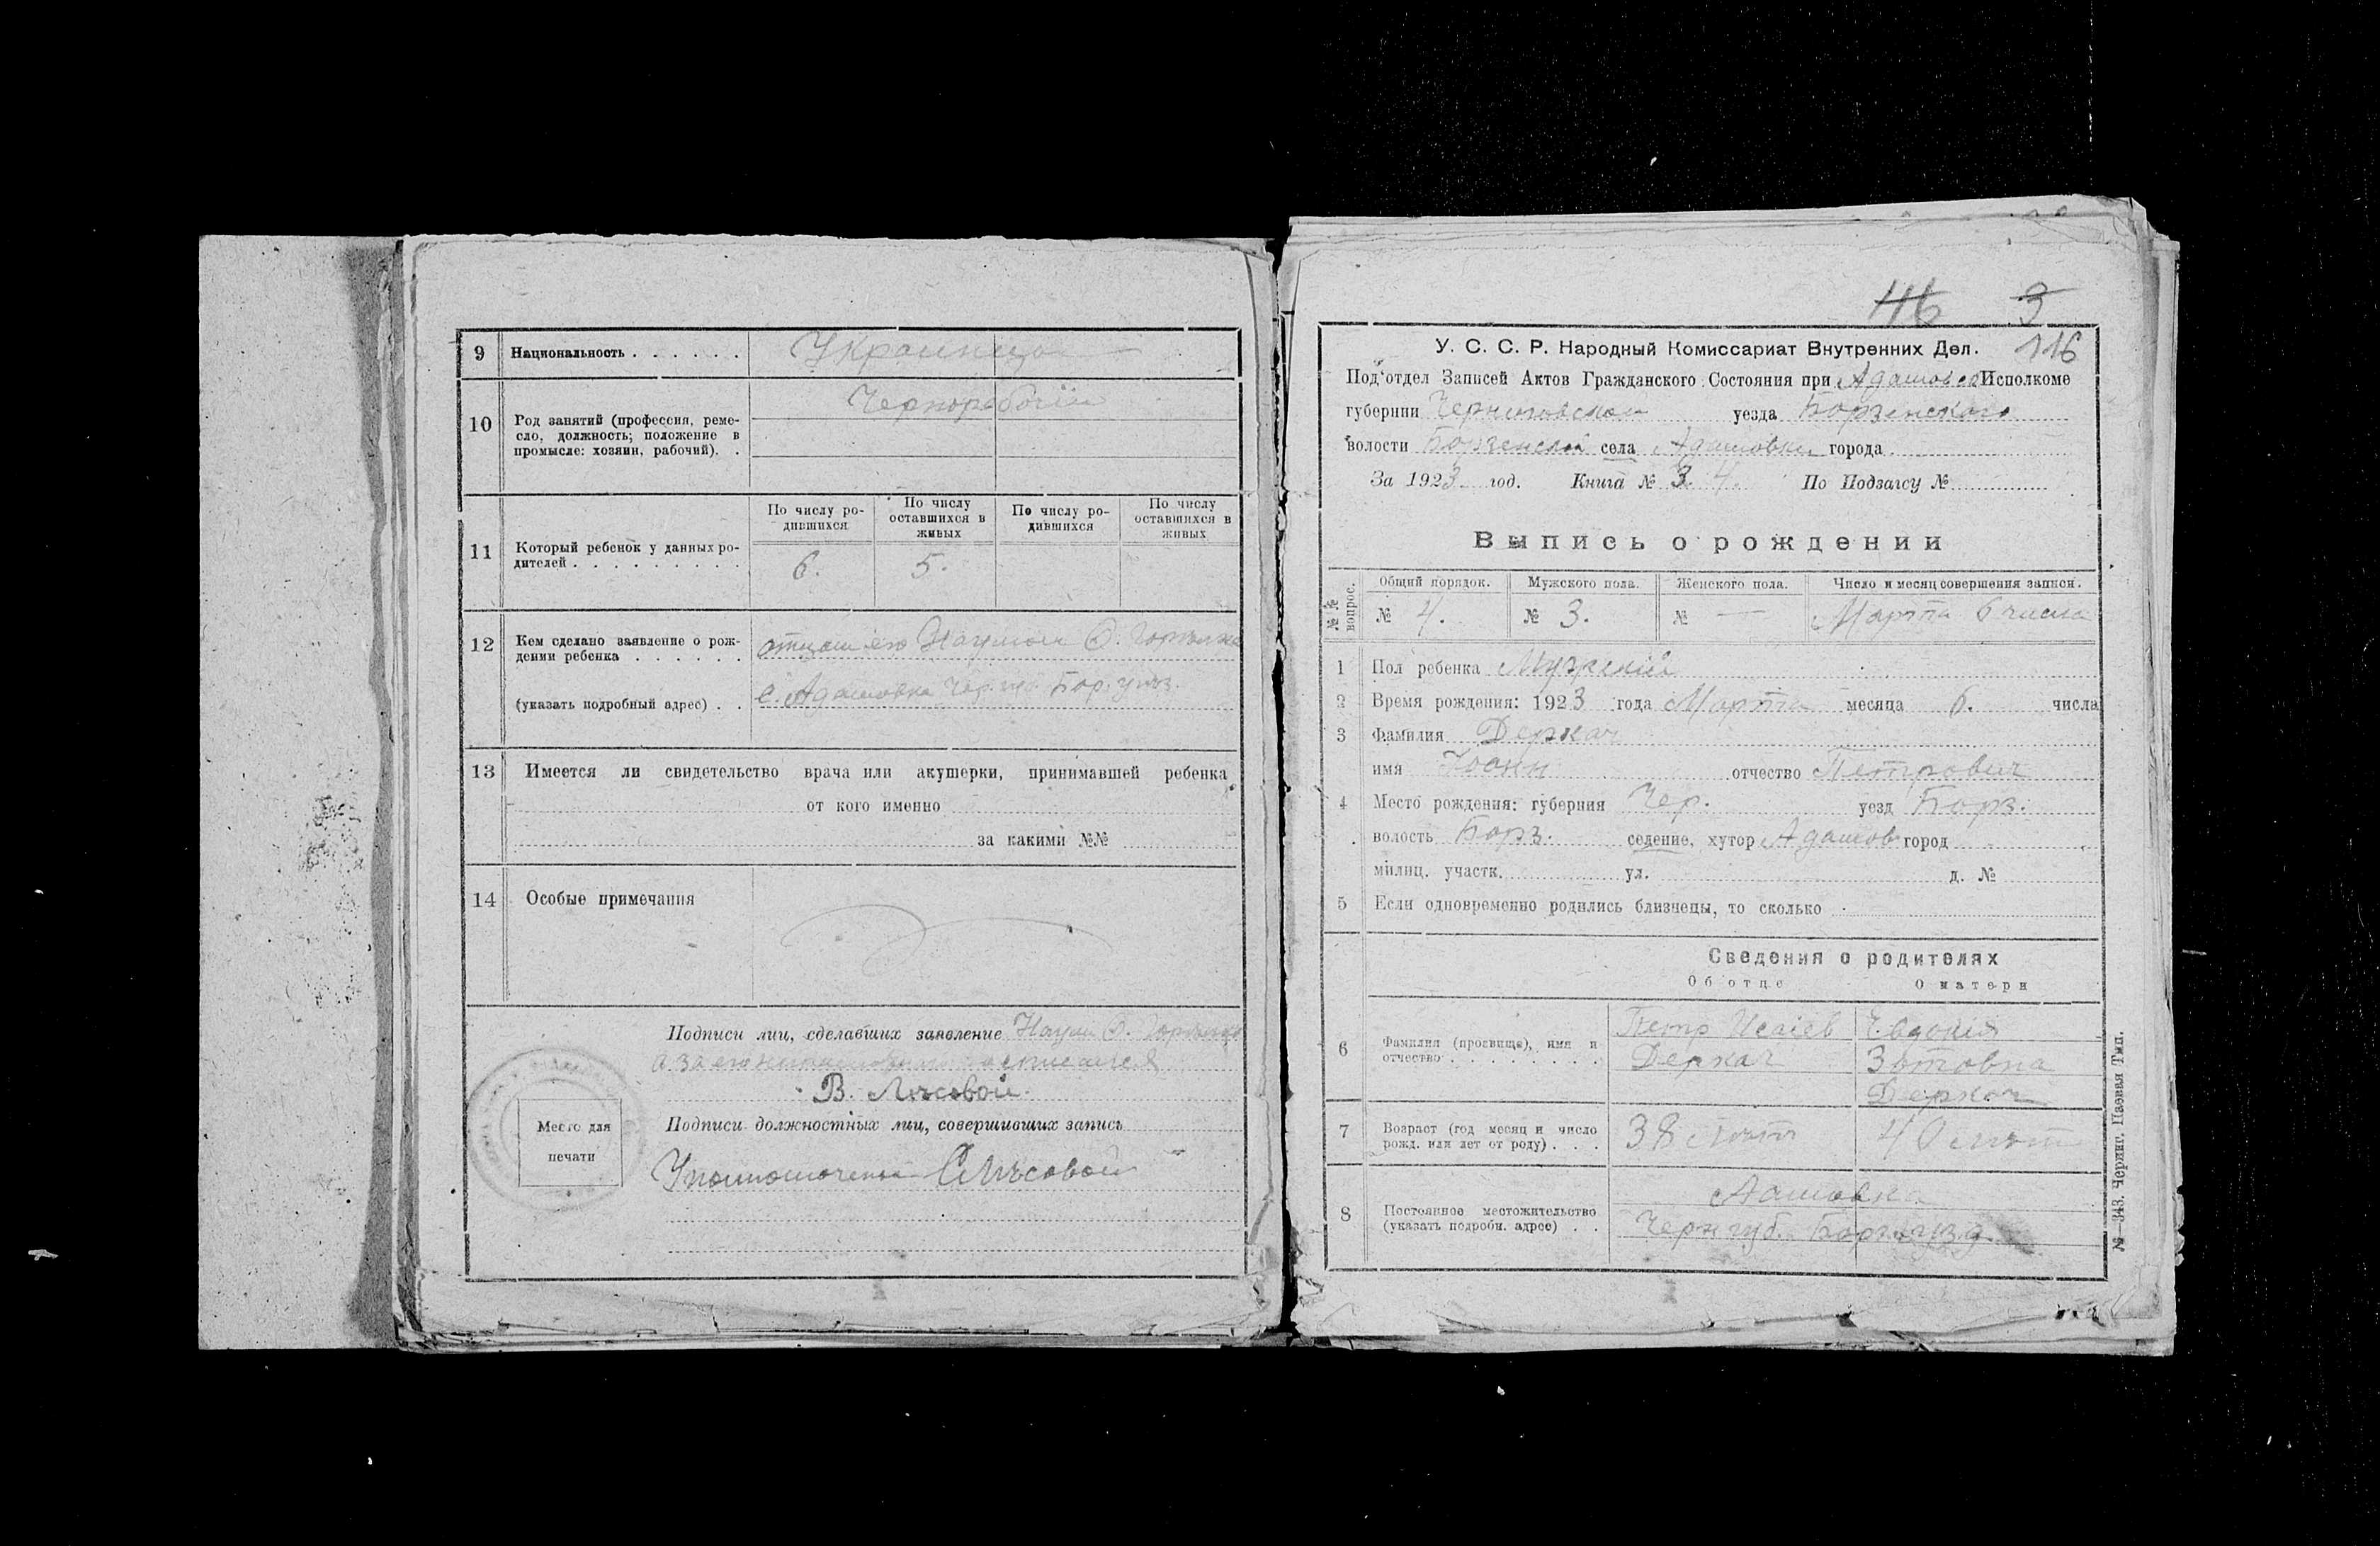 9 Национальность . . . . . . Украинцы —
10 Род занятий (профессия, реме-
сло, должность; положение в
промысле: хозяин, рабочий). .
Чернорабочій
11 Который ребенок у данных ро-
дителей . . . . . . . . .
По числу ро-
дившихся
По числу
оставшихся в
живых
По числу ро-
дившихся
По числу
оставшихся в
живых
6. 5.
12 Кем сделано заявление о рож-
дении ребенка . . . . . .
отцом его Наумом О.
(указать подробный адрес) . . с. Адамовка Чер. губ. Бор. уѣз.
13 Имеется ли свидетельство врача или акушерки, принимавшей ребенка
от кого именно
за какими №№
14 Особые примечания
Подписи лиц, сделавших заявление Наум О.
а за его расписался
В. Лѣсовой.
Место для
печати
Подписи должностных лиц, совершивших запись
Лѣсовой
46 3
116
У. С. С. Р. Народный Комиссариат Внутренних Дел.
Под'отдел Записей Актов Гражданского Состояния при Исполкоме
губернии Черниговской уезда Борзенского
волости Борзенской села Адамовки города
За 1923 год. Книга № 3. 4. По Подзагсу №
Выпись о рождении
№№ вопрос.
Общий порядок. Мужского пола. Женского пола. Число и месяц совершения записи.
№ 4. № 3. № — Марта 6 числа
1 Пол ребенка Мужскій
2 Время рождения: 1923 года Марта месяца 6. числа
3 Фамилия Деркач
имя Иоанн отчество Петрович
4 Место рождения: губерния Чер. уезд Борз.
волость Борз. селение, хутор Адамов город
милиц. участк. ул. д. №
5 Если одновременно родились близнецы, то сколько
Сведения о родителях
Об отце О матери
6 Фамилия (прозвище), имя и
отчество . . . . . . . .
Петр Исаіев
Деркач
Евдокія
Деркач
7 Возраст (год месяц и число
рожд. или лет от роду) . . .
38 лѣт 40 лѣт
8 Постоянное местожительство
(указать подробн. адрес) . .
Черн губ. Борз. узд.
№—343. Черниг. Цаевая Тип.